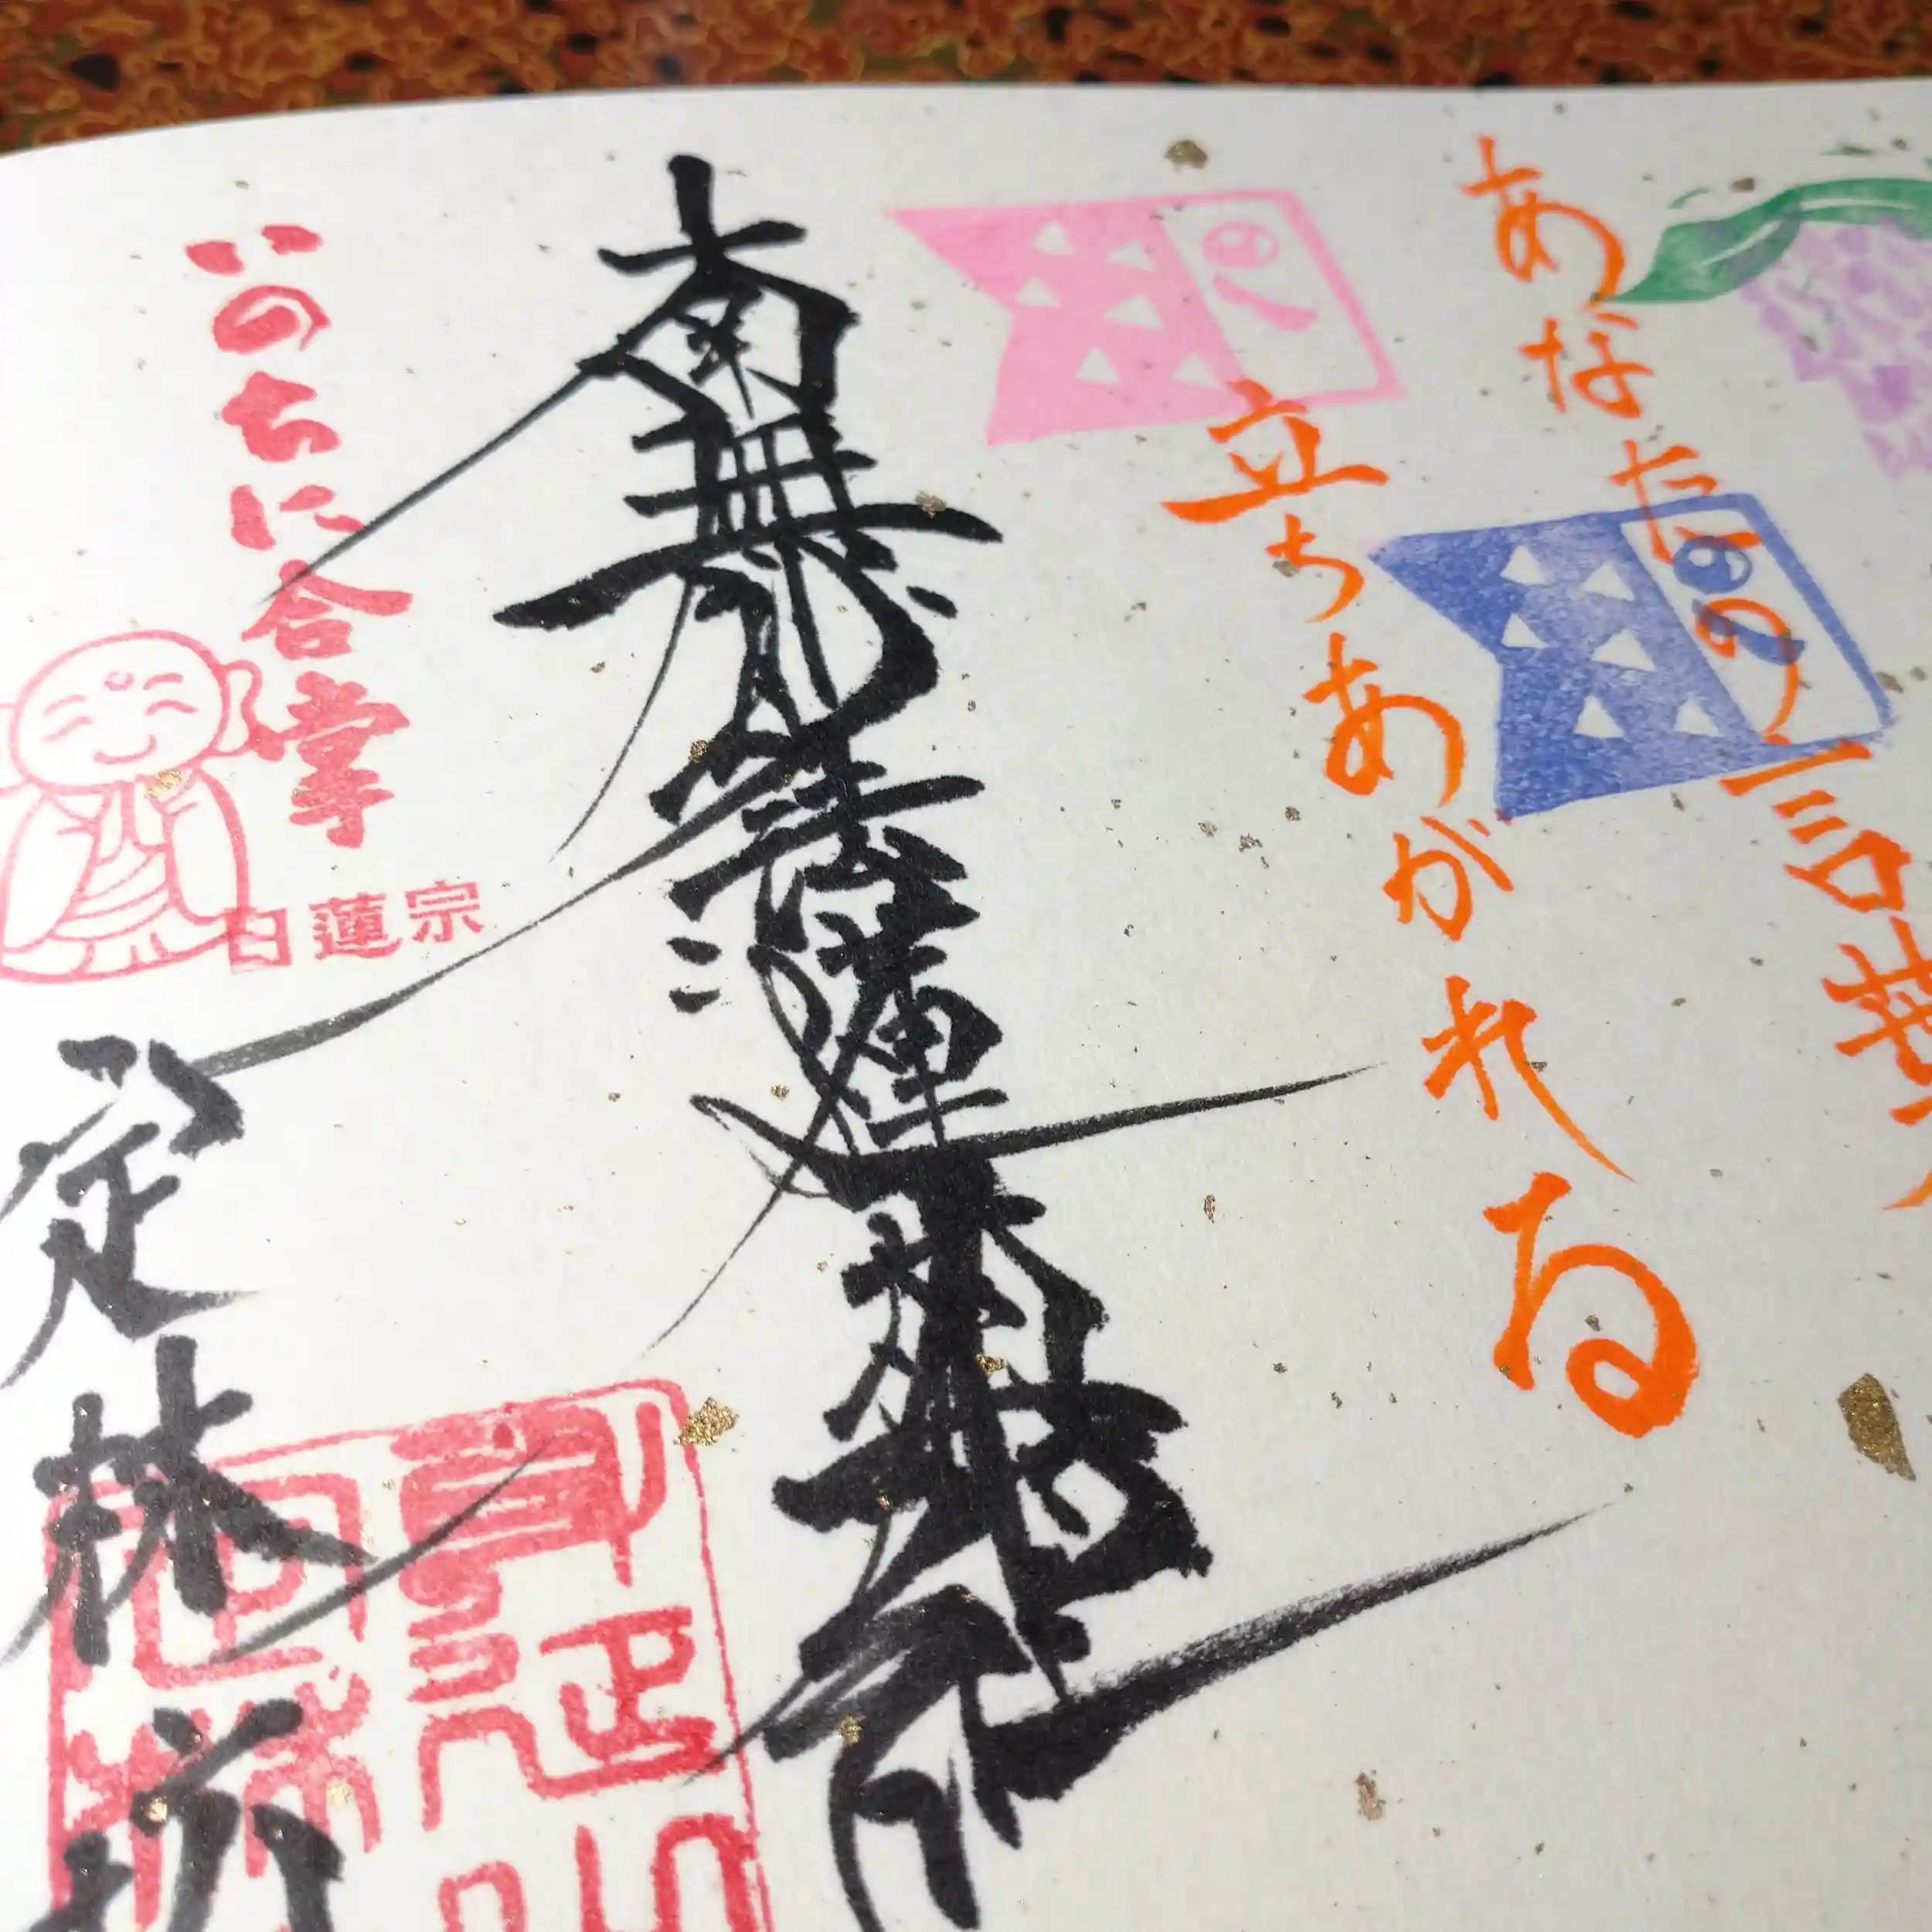 あなたの言葉
立ちあがれる
南無妙法蓮華経
いのちに合掌
日蓮宗
定林